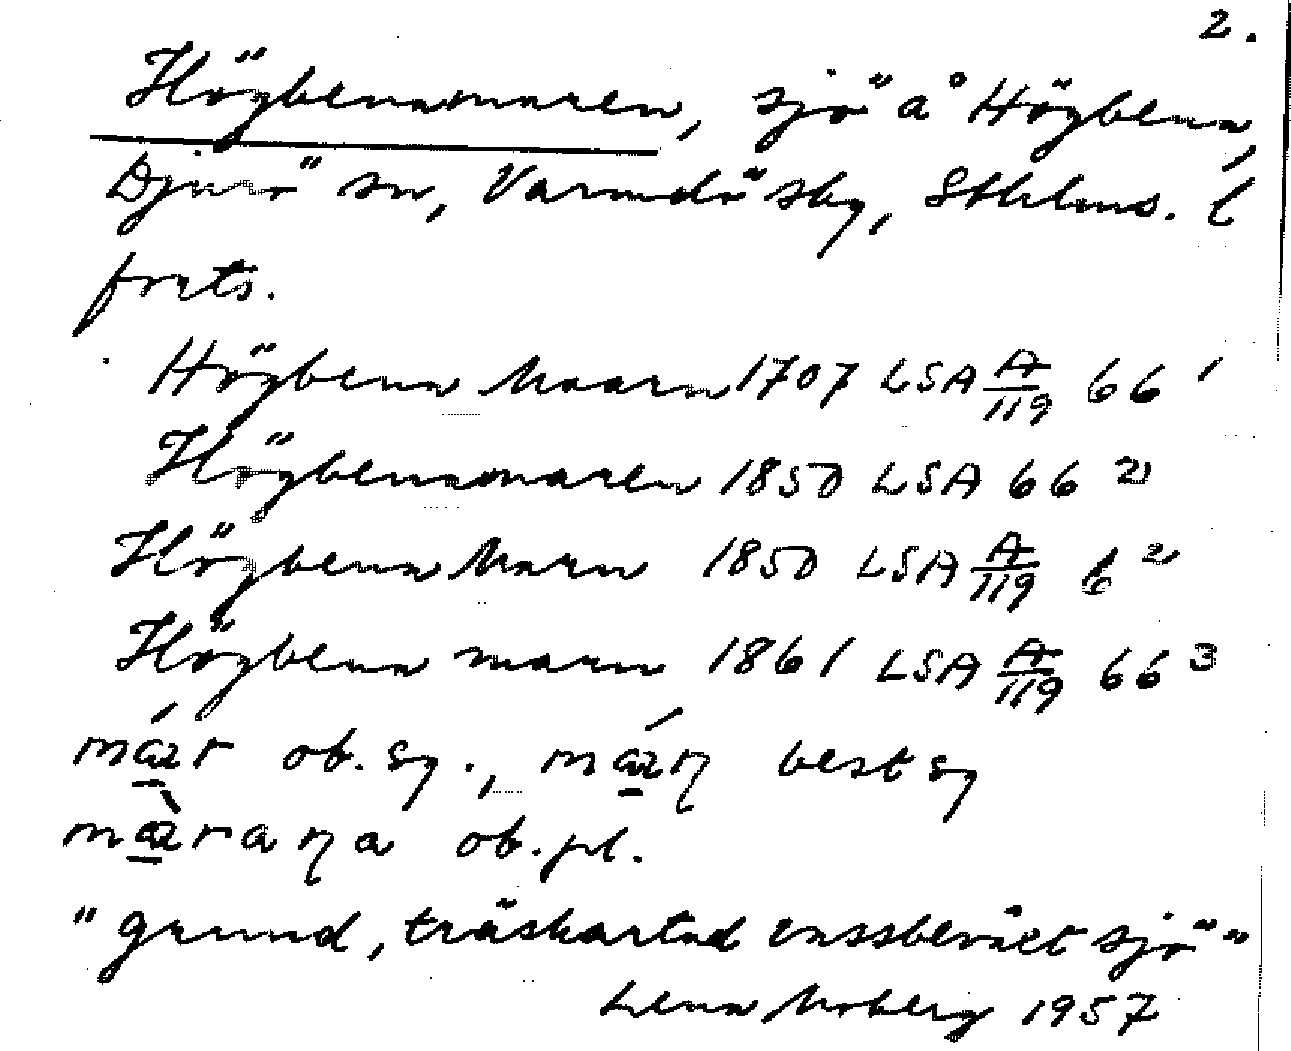 2.
Högbennamaren, sjö å Högbenn,
Djurö sn, Värmdö sky, Sthlms. l
forts.
Högbenn Maarn 1707 LSA A/119 66 1
Högbennamaren 1850 LSA 66 2)
Högbenna Marn 1850 LSA A/119 6 2)
Högbenna marn 1861 LSA A/119 66 3
már ob. sg., márn best sg
màrana ob. pl.
"grund, träskartad vassbevåxt sjö"
Lena Moberg 1957